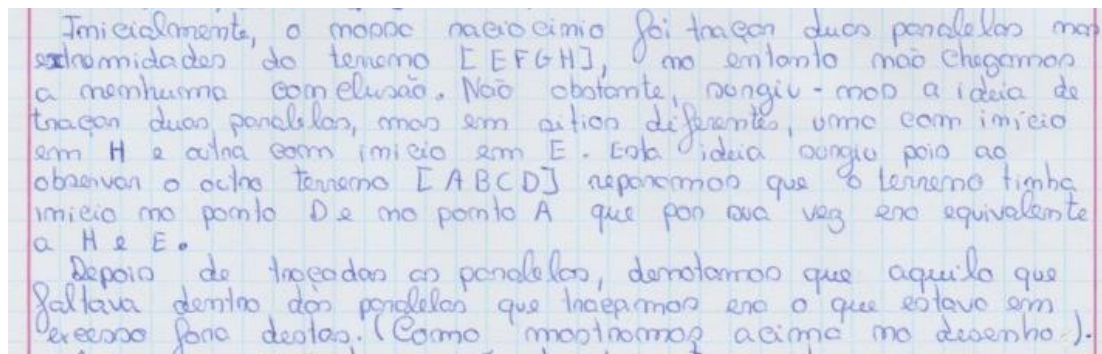 Inicialmente, o nosso raciocinio foi traçar duas paralelas nas
extremidades do terreno [EFGH], no entanto não chegamos
a nenhuma conclusão. Não obstante, surgiu-nos a ideia de
traçar duas paralelas, mas em sitios diferentes, uma com inicio
em H e outra com inicio em E. Esta ideia surgiu pois ao
observar o outro terreno [ABCD] reparamos que o terreno tinha
inicio no ponto D e no ponto A que por sua vez era equivalente
a H e E.
Depois de traçadas as paralelas, denotamos que aquilo que
faltava dentro das paralelas que traçamos era o que estava em
excesso fora destas. (Como mostramos acima no desenho).